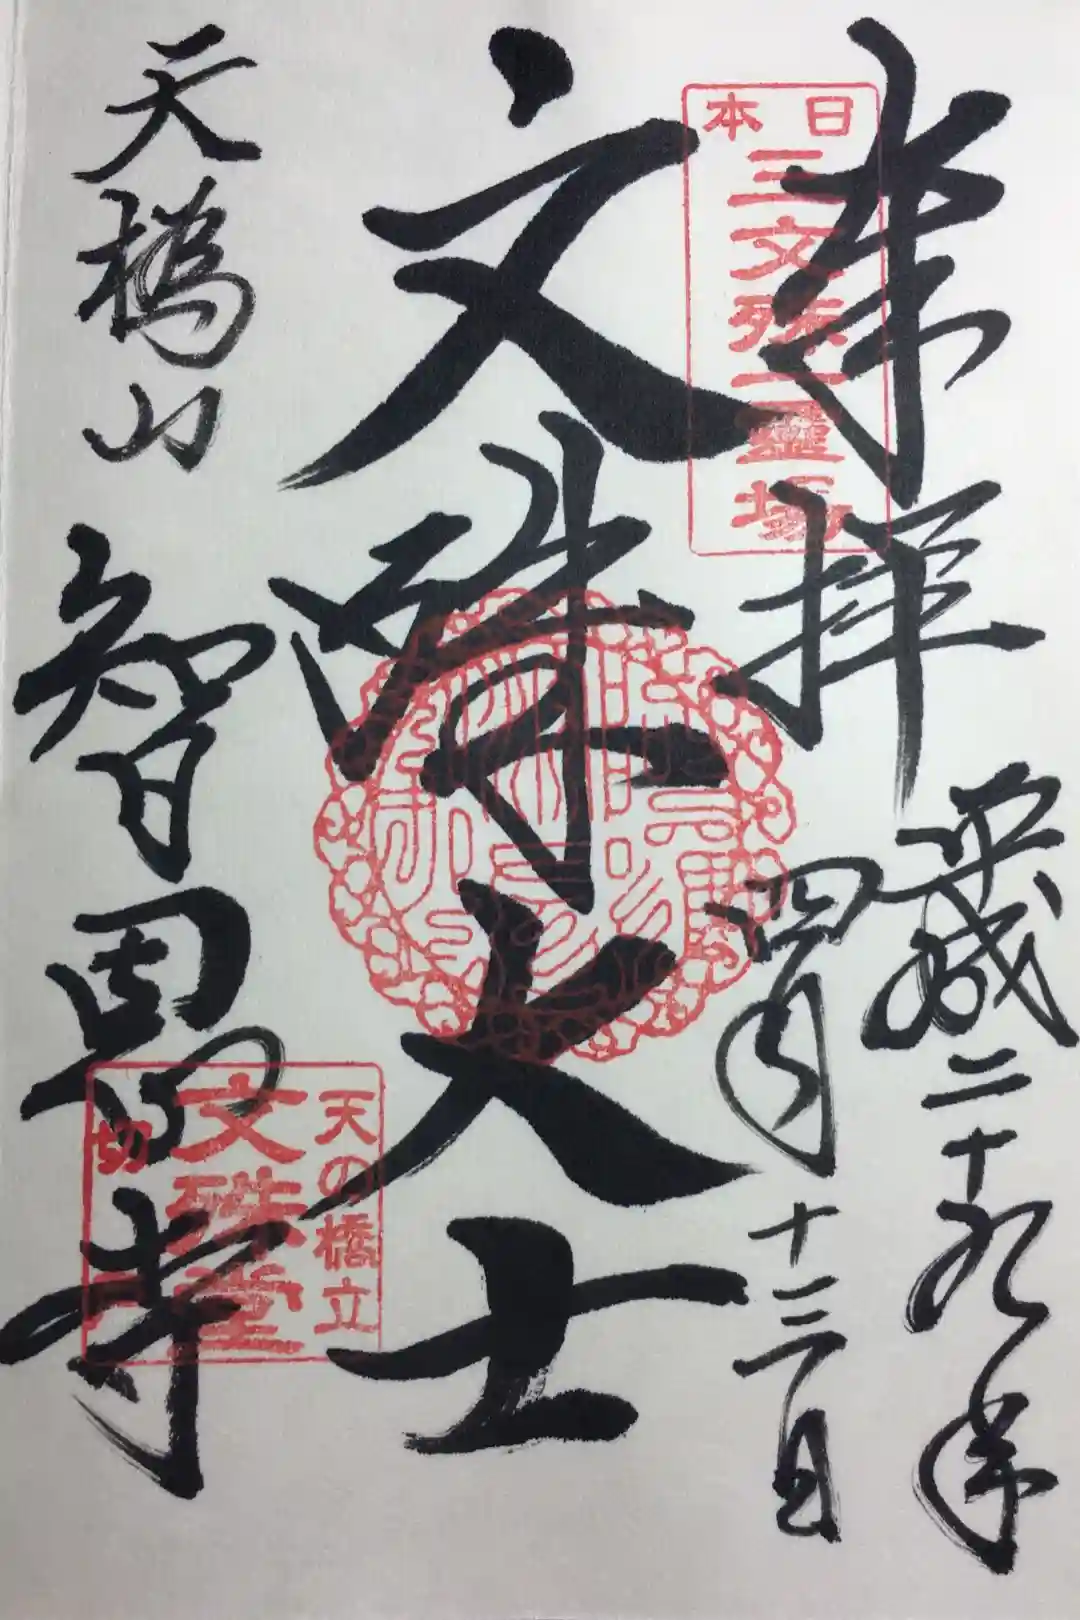 奉拝
平成二十九年
四月十三日
日本
三文殊一霊場
文殊大士
天橋山
智恩寺
天の橋立
文殊堂
切戸